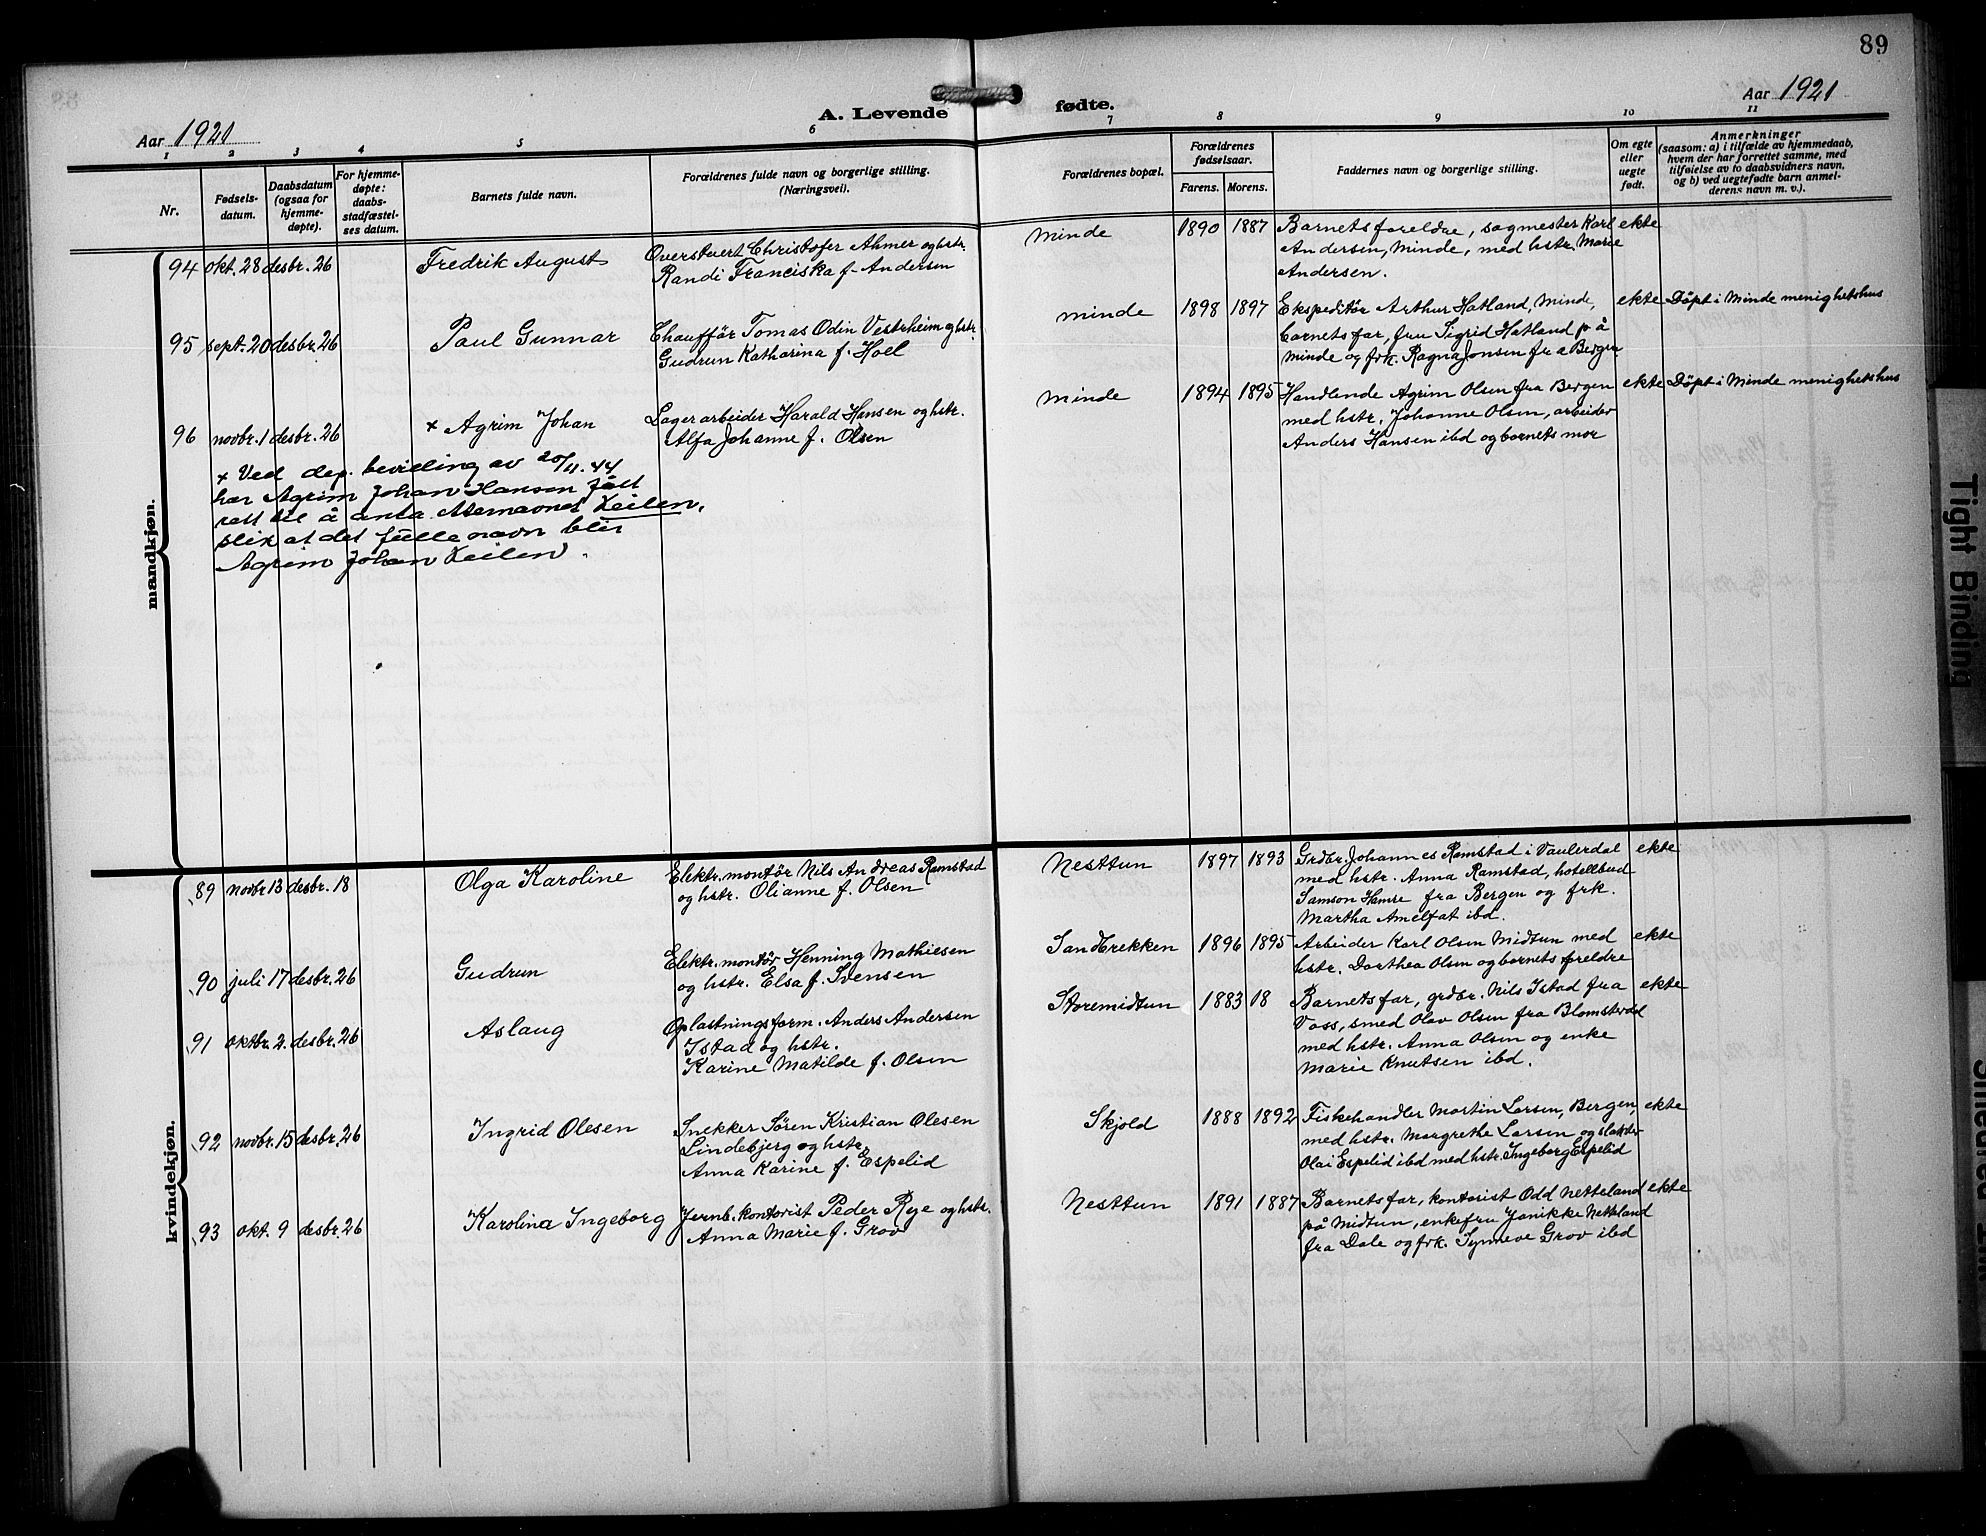 89
Aar 1921
A. Levende fødte.
Aar 1921
1 2 3 4 5 6 7 8 9 10 11
Nr.
Fødsels-
datum.
Daabsdatum
(ogsaa for
hjemme-
døpte).
For hjemme-
døpte:
daabs-
stadfæstel-
ses datum.
Barnets fulde navn.
Forældrenes fulde navn og borgerlige stilling.
(Næringsvei).
Forældrenes bopæl.
Forældrenes
fødselsaar.
Farens. Morens.
Faddernes navn og borgerlige stilling.
Om egte
eller
uegte
født.
Anmerkninger
(saasom: a) i tilfælde av hjemmedaab,
hvem der har forrettet samme, med
tilføielse av to daabsvidners navn,
og b) ved uegtefødte barn anmel-
derens navn m. v.).
mandkjøn.
94 okt. 28 desbr. 26 Fredrik August
Overstuert Christofer Ahmer og hstr.
Randi Franciska f. Andersen
Minde 1890 1887
Barnets foreldre, sagmester Karl
Andersen, Minde, med hstr. Marie
Andersen.
ekte
95 sept. 20 desbr. 26 Paul Gunnar
Chauffør Tomas Odin Vestrheim og hstr.
Gudrun Katharina f. Hoel
Minde 1898 1897
Ekspeditør Arthur Hatland, Minde,
barnets far, fru Sigrid Hatland på
Minde og frk. Ragna Jonsen fra Bergen
ekte Døpt i Minde menighetshus
96 novbr. 1 desbr. 26 × Agrim Johan
Lagerarbeider Harald Hansen og hstr.
Alfa Johanne f. Olsen
Minde 1894 1895
Handlende Agrim Olsen fra Bergen
med hstr. Johanne Olsen, arbeider
Anders Hansen ibd og barnets mor
ekte Døpt i Minde menighetshus
× Ved dep. bevilling av 20/11. 44
har Agrim Johan Hansen fått
rett til å anta slektsnavnet Leilen,
slik at det fulle navn blir
Agrim Johan Leilen.
kvindekjøn.
89 novbr 13 desbr. 18 Olga Karoline
Elektr. montør Nils Andreas Ramstad
og hstr. Olianne f. Olsen
Nesttun 1897 1893
Grdbr. Johannes Ramstad i Vaulerdal
med hstr. Anna Ramstad, hotellbud
Samson Hamre fra Bergen og frk.
Martha Amelfat ibd.
ekte
90 juli 17 desbr. 26 Gudrun
Elektr. montør Henning Mathiesen
og hstr. Elsa f. Svensen
Sandbrekken 1896 1895
Arbeider Karl Olsen Midtun med
hstr. Dorthea Olsen og barnets foreldre
ekte
91 oktbr. 2. desbr. 26 Aslaug
Oplastningsform. Anders Andersen
Istad og hstr.
Karine Matilde f. Olsen
Storemidtun 1883 18
Barnets far, grdbr. Nils Istad fra
Voss, smed Olav Olsen fra
med hstr. Anna Olsen og enke
Marie Knutsen ibd.
ekte
92 novbr. 15 desbr. 26 Ingrid Olesen
Snekker Søren Kristian Olesen
Lindebjerg og hstr.
Anna Karine f. Espelid
Skjold 1888 1892
Fiskehandler Martin Larsen, Bergen,
med hstr. Margrethe Larsen og slakter
Olai Espelid ibd med hstr. Ingeborg Espelid
ekte
93 okt. 9 desbr. 26 Karolina Ingeborg
Jernb. kontorist Peder Rye og hstr.
Anna Marie f. Grov
Nesttun 1891 1887
Barnets far, kontorist Odd Netteland
på Midtun, enkefru Janikke Netteland
fra Dale og frk. Synneve Grov ibd
ekte
Tight Binding